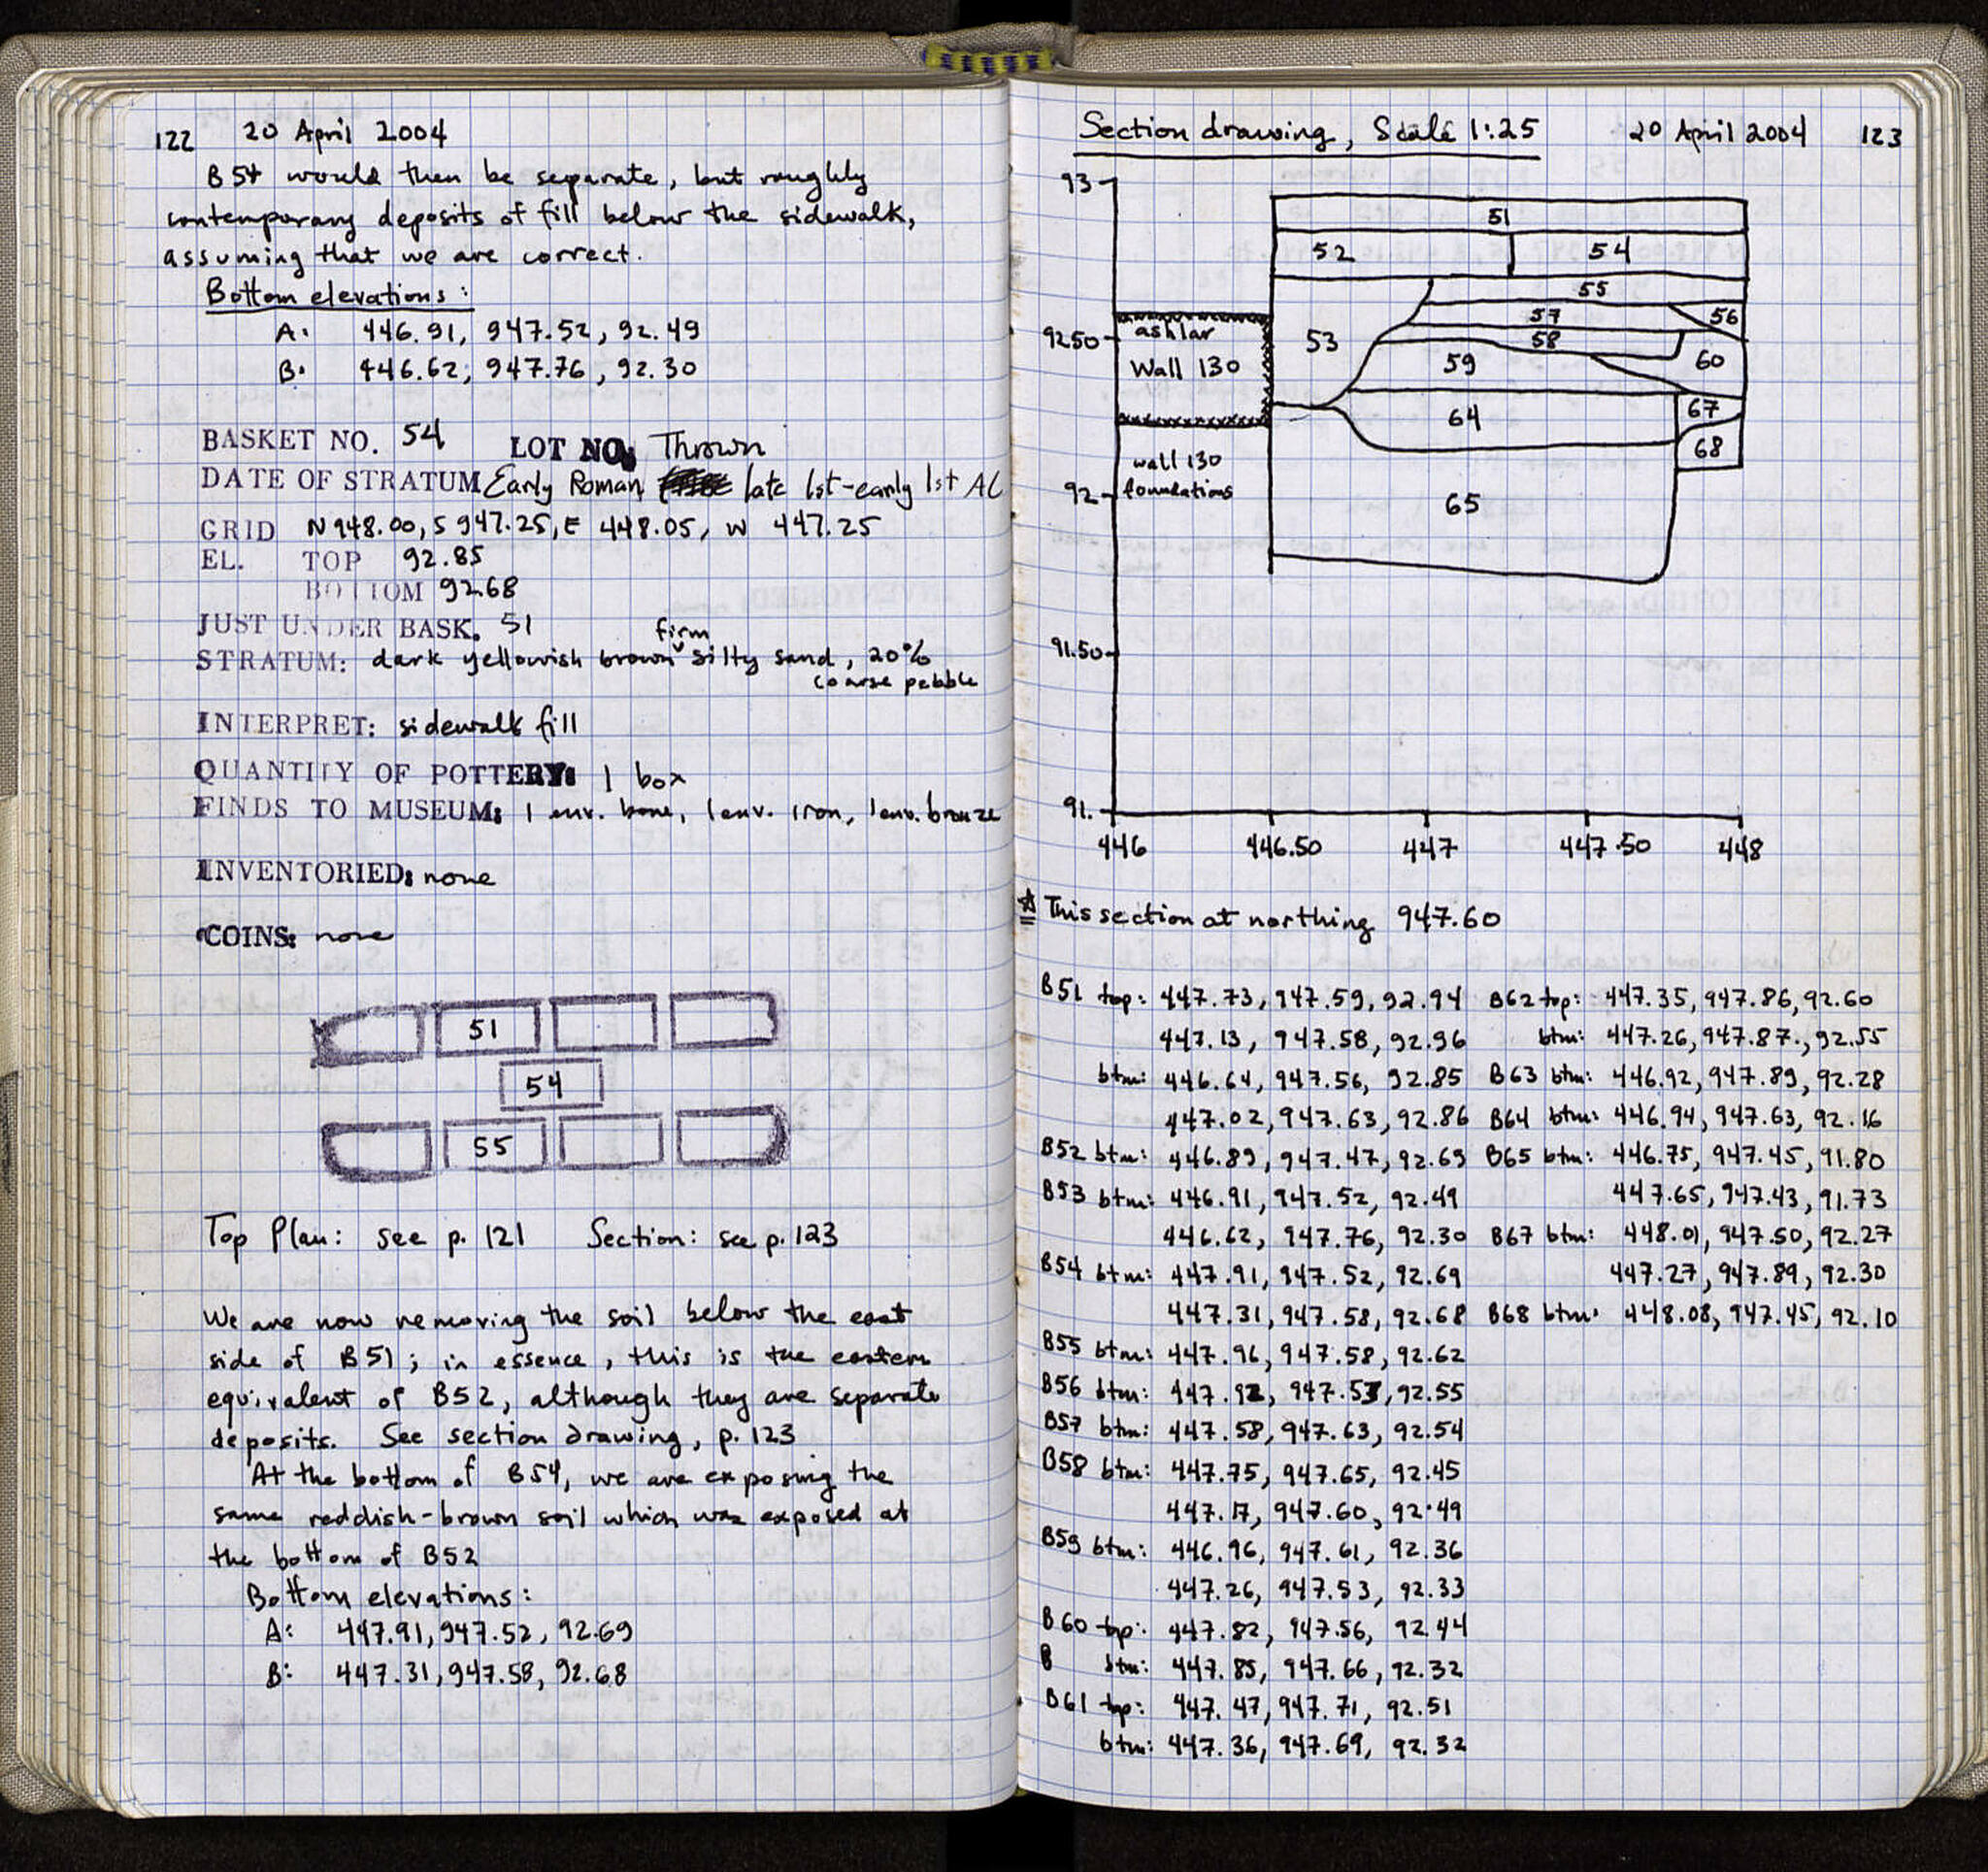 122 20 April 2004
B54 would then be separate, but roughly
contemporary deposits of fill below the sidewalk,
assuming that we are correct.
Bottom elevations:
A: 446.91, 947.52, 92.49
B: 446.62, 947.76, 92.30
BASKET NO. 54 LOT NO. Thrown
DATE OF STRATUM Early Roman late 1st-early 1st AC
GRID N 948.00, S 947.25, E 448.05, W 447.25
EL. TOP 92.85
BOTTOM 92.68
JUST UNDER BASK. 51
STRATUM: dark yellowish brown firm silty sand, 20%
coarse pebble
INTERPRET: sidewalk fill
QUANTITY OF POTTERY: 1 box
FINDS TO MUSEUM: 1 env. bone, 1 env. iron, 1 env. bronze
INVENTORIED: none
COINS: none
51
54
55
Top Plan: see p. 121 Section: see p. 123
We are now removing the soil below the east
side of B51; in essence, this is the eastern
equivalent of B52, although they are separate
deposits. See section drawing, p. 123
At the bottom of B54, we are exposing the
same reddish-brown soil which was exposed at
the bottom of B52
Bottom elevations:
A: 447.91, 947.52, 92.69
B: 447.31, 947.58, 92.68
Section drawing, Scale 1:25 20 April 2004 123
93
51
52 54
55
57 56
92.50 ashlar 53 58
Wall 130 59 60
64 67
wall 130 68
92 foundations 65
91.50
91.
446 446.50 447 447.50 448
☆ This section at northing 947.60
B51 top: 447.73, 947.59, 92.94 B62 top: 447.35, 947.86, 92.60
447.13, 947.58, 92.96 btm: 447.26, 947.87, 92.55
btm: 446.64, 947.56, 92.85 B63 btm: 446.92, 947.89, 92.28
447.02, 947.63, 92.86 B64 btm: 446.94, 947.63, 92.16
B52 btm: 446.89, 947.47, 92.69 B65 btm: 446.75, 947.45, 91.80
B53 btm: 446.91, 947.52, 92.49 447.65, 947.43, 91.73
446.62, 947.76, 92.30 B67 btm: 448.01, 947.50, 92.27
B54 btm: 447.91, 947.52, 92.69 447.27, 947.89, 92.30
447.31, 947.58, 92.68 B68 btm: 448.08, 947.45, 92.10
B55 btm: 447.96, 947.58, 92.62
B56 btm: 447.92, 947.53, 92.55
B57 btm: 447.58, 947.63, 92.54
B58 btm: 447.75, 947.65, 92.45
447.17, 947.60, 92.49
B59 btm: 446.96, 947.61, 92.36
447.26, 947.53, 92.33
B60 top: 447.82, 947.56, 92.44
B btm: 447.85, 947.66, 92.32
B61 top: 447.47, 947.71, 92.51
btm: 447.36, 947.69, 92.32